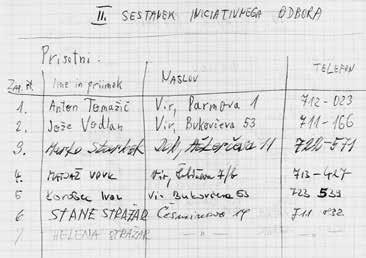 II. SESTANEK INICIATIVNEGA ODBORA
Prisotni:
Zap. št. Ime in priimek NASLOV TELEFON
1. Anton Tomažič Vir, Parmova 1 712-023
2. Jože Vodlan Vir, Bukovčeva 53 711-166
3. 11
4. MATJAŽ VOVK Vir, 7/6 713-427
5 Korošec Ivan Vir Bukovčeva 53 723 539
6 STANE STRAŽAR 711 832
7. HELENA STRAŽAR -"- -"-